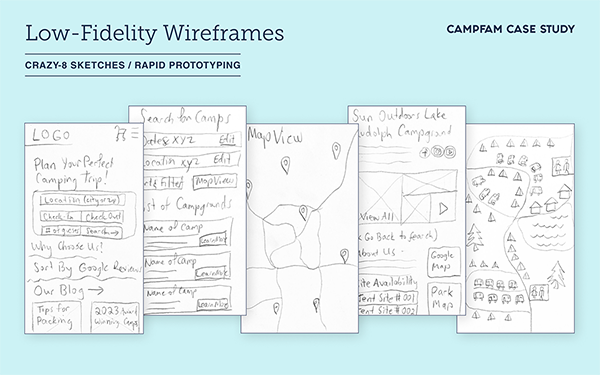 Low-Fidelity Wireframes
CAMPFAM CASE STUDY
CRAZY-8 SKETCHES / RAPID PROTOTYPING
LOGO
Plan Your Perfect
Camping Trip!
Location (city or zip)
Check-In Check Out
# of guests Search→
Why Choose Us?
Sort By Google Reviews
Our Blog →
Tips for
Packing
2023 Award
Winning Camps
Search for Camps
Dates xyz Edit
Location xyz Edit
Filter Map View
List of Campgrounds
Name of Camp
Learn More
Name of Camp
Learn More
Name of Camp
Learn More
Map View
Sun Outdoors Lake
Rudolph Campground
View All
Go Back to Search
About Us
Google
Map
Site Availability
Tent Site # 001
Tent Site # 002
Park
Map